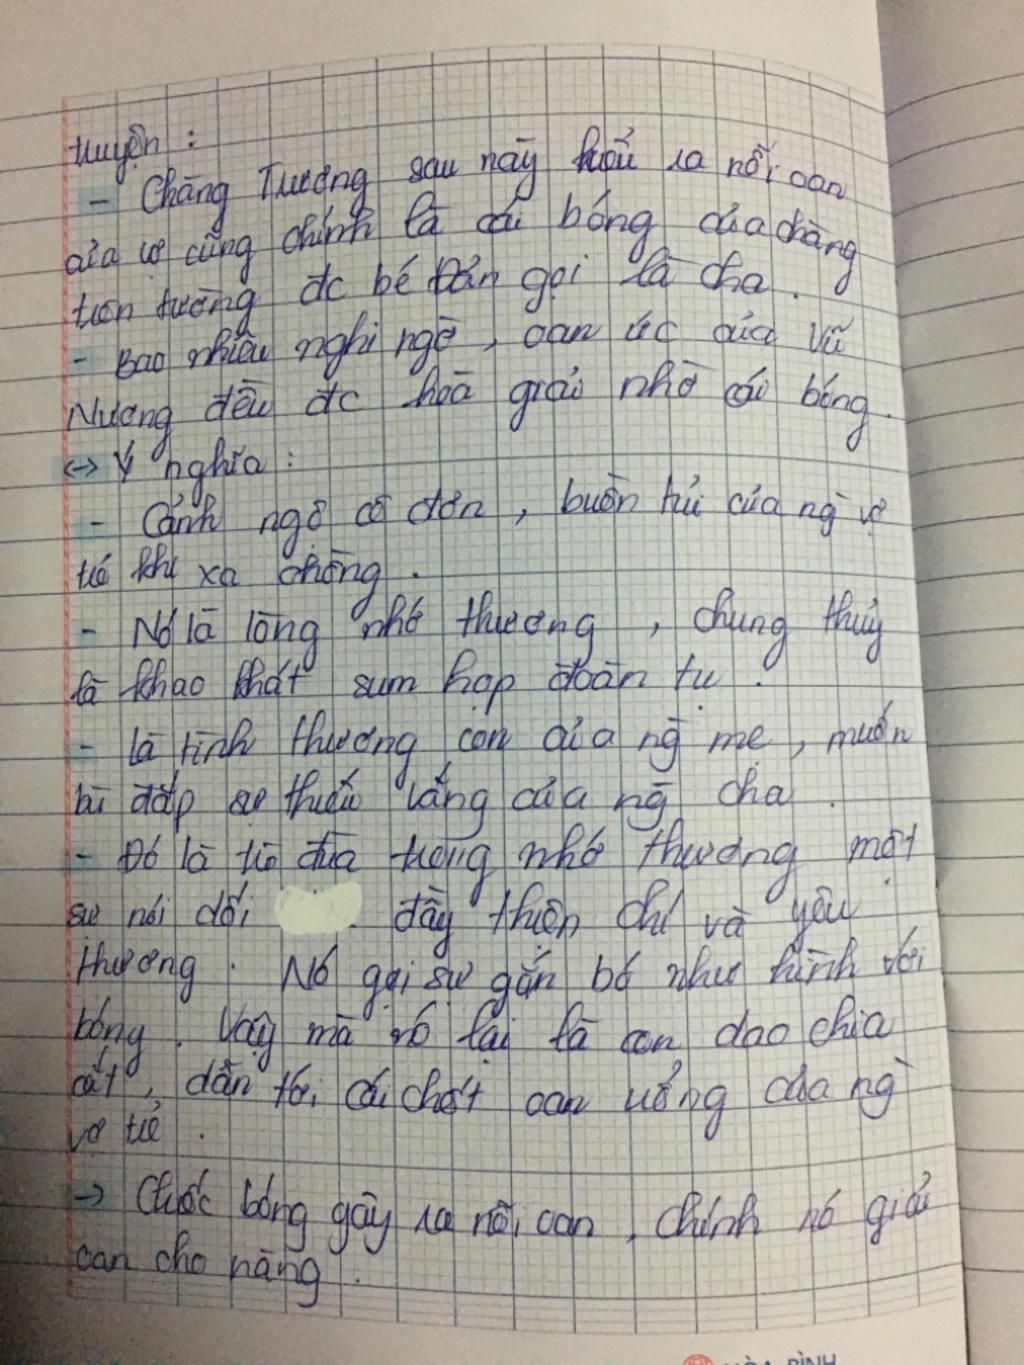 truyện :
- Chàng Trương sau này hiểu ra nỗi oan
của vợ cũng chính là cái bóng của chàng
trên tường đc bé Đản gọi là cha.
- Bao nhiêu nghi ngờ, oan ức của Vũ
Nương đều đc hoá giải nhờ cái bóng.
<-> Ý nghĩa :
- Cảnh ngộ cô đơn, buồn tủi của ng vợ
trẻ khi xa chồng.
- Nó là lòng nhớ thương, chung thủy
là khao khát sum họp đoàn tụ.
- Là tình thương con của ng mẹ, muốn
bù đắp sự thiếu vắng của ng cha.
- Đó là trò đùa trong nhớ thương một
sự nói dối đầy thiện chí và yêu
thương. Nó gợi sự gắn bó như hình với
bóng. Vậy mà nó lại là con dao chia
cắt, dẫn tới cái chết oan uổng của ng
vợ trẻ.
-> Chiếc bóng gây ra nỗi oan, chính nó giải
oan cho nàng.
HÒA BÌNH